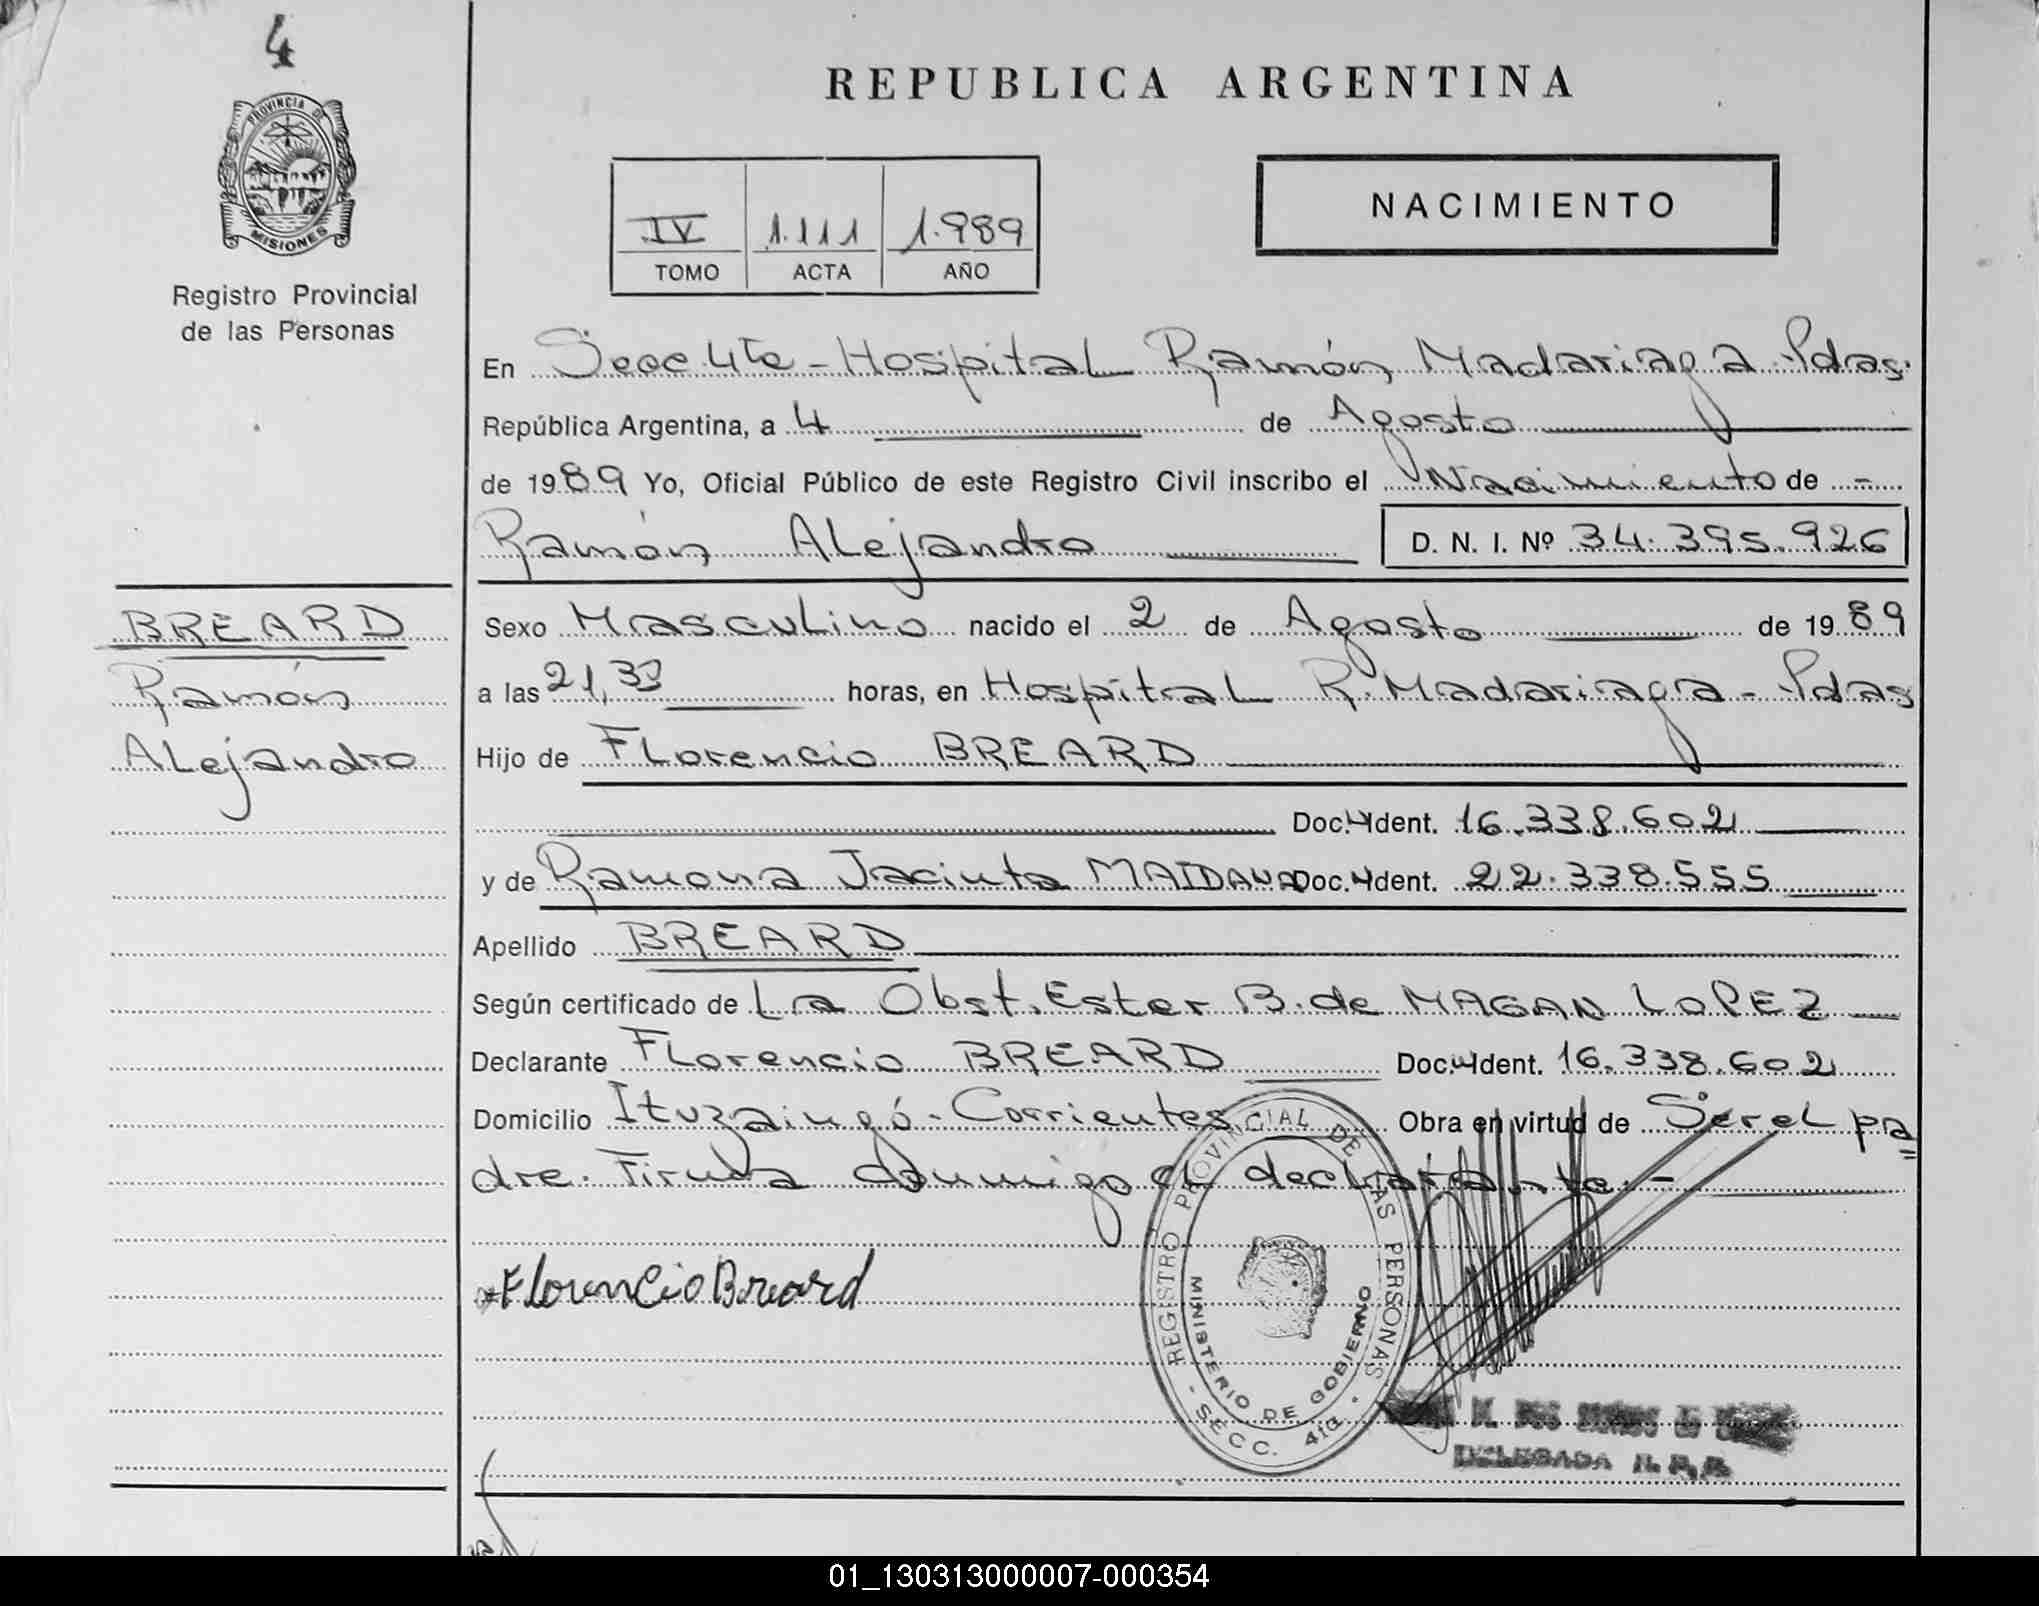 4
PROVINCIA DE
MISIONES
Registro Provincial
de las Personas
BREARD
Ramón
Alejandro
REPUBLICA ARGENTINA
IV 1.111 1.989
TOMO ACTA AÑO
NACIMIENTO
En Secc 4ta - Hospital Ramón Madariaga - Pdas.
República Argentina, a 4 de Agosto
de 1989 Yo, Oficial Público de este Registro Civil inscribo el Nacimiento de -
Ramón Alejandro D. N. I. Nº 34.395.926
Sexo Masculino nacido el 2 de Agosto de 1989
a las 21,33 horas, en Hospital R. Madariaga - Pdas
Hijo de Florencio BREARD
Doc. Ident. 16.338.602
y de Ramona Jacinta MAIDANA Doc. Ident. 22.338.555
Apellido BREARD
Según certificado de La Obst. Ester B. de MAGAN LOPEZ
Declarante Florencio BREARD Doc. Ident. 16.338.602
Domicilio Ituzaingó - Corrientes Obra en virtud de Ser el pa
dre. Firma conmigo el declarante. -
Florencio Breard
REGISTRO PROVINCIAL DE LAS PERSONAS
MINISTERIO DE GOBIERNO
- SECC. 4ta -
DELEGADA R. P. P.
01_130313000007-000354